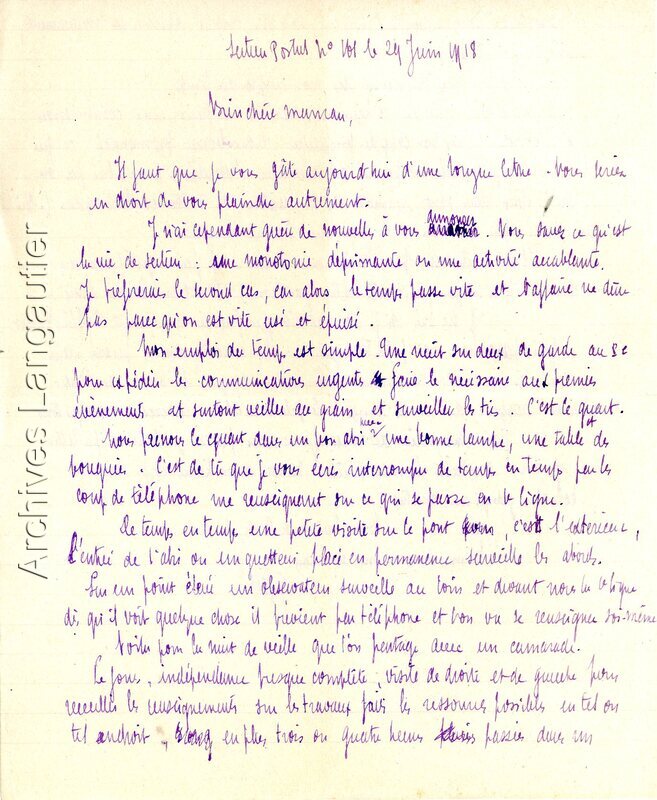 Section Postal No 161 le 29 Juin 1918
Bien chère maman,
Il faut que je vous gâte aujourd'hui d'une longue lettre. Vous seriez
en droit de vous plaindre autrement.
Je n'ai cependant guère de nouvelles à vous annoncer. Vous savez ce qu'est
la vie de secteur : une monotonie déprimante ou une activité accablante.
Je préférerais le second cas, car alors le temps passe vite et l'affaire ne dure
pas parce qu'on est vite usé et épuisé.
Mon emploi du temps est simple. Une nuit sur deux de garde au
pour expédier les communications urgentes faire le nécessaire aux premiers
évènements et surtout veiller au grain et surveiller les tirs. C'est le quart.
Nous prenons le quart dans un bon abri avec une bonne lampe, une table et des
bouquins. C'est de là que je vous écris interrompu de temps en temps par les
coup de téléphone me renseignant sur ce qui se passe en ligne.
De temps en temps une petite visite sur le pont c'est l'extérieur,
l'entrée de l'abri ou un guetteur placé en permanence surveille les abords.
Sur un point élevé un observateur surveille au loin et devant nous la ligne
dès qu'il voit quelque chose il prévient par téléphone et l'on va se renseigner soi-même
Voilà pour la nuit de veille que l'on partage avec un camarade.
Le jour, indépendance presque complète, visite de droite et de gauche pour
recueillir les renseignements sur les travaux faits les ressources possibles en tel ou
tel endroit, en plus trois ou quatre heures passées dans un
Archives Langautier